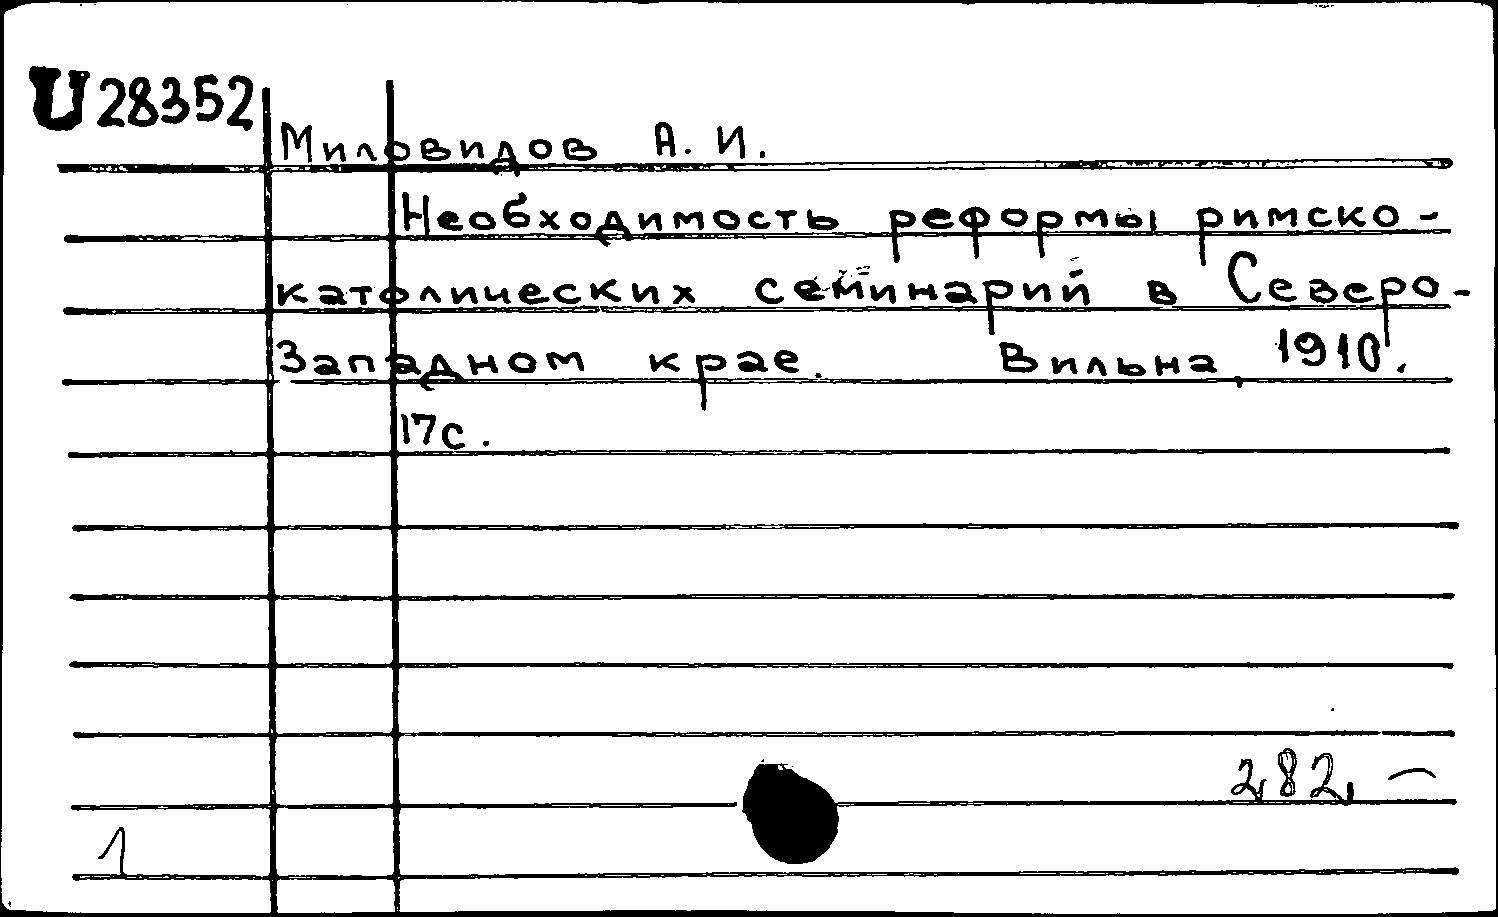 U28352
Миловидов А. И.
Необходимость реформы римско-
католических семинарий в Северо-
Западном крае. Вильна, 1910.
17 с.
282, –
1